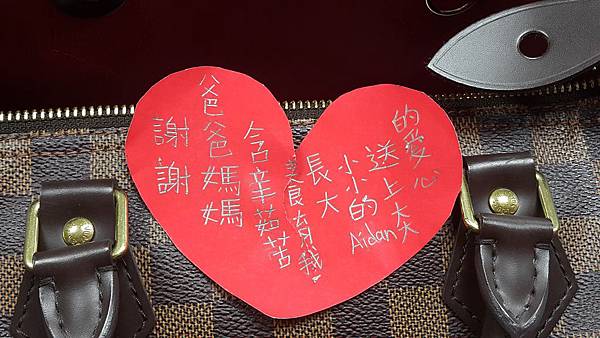 謝謝
爸爸媽媽
含辛茹苦
養育我
長大
小小的
Aidan
送上大大
的愛心